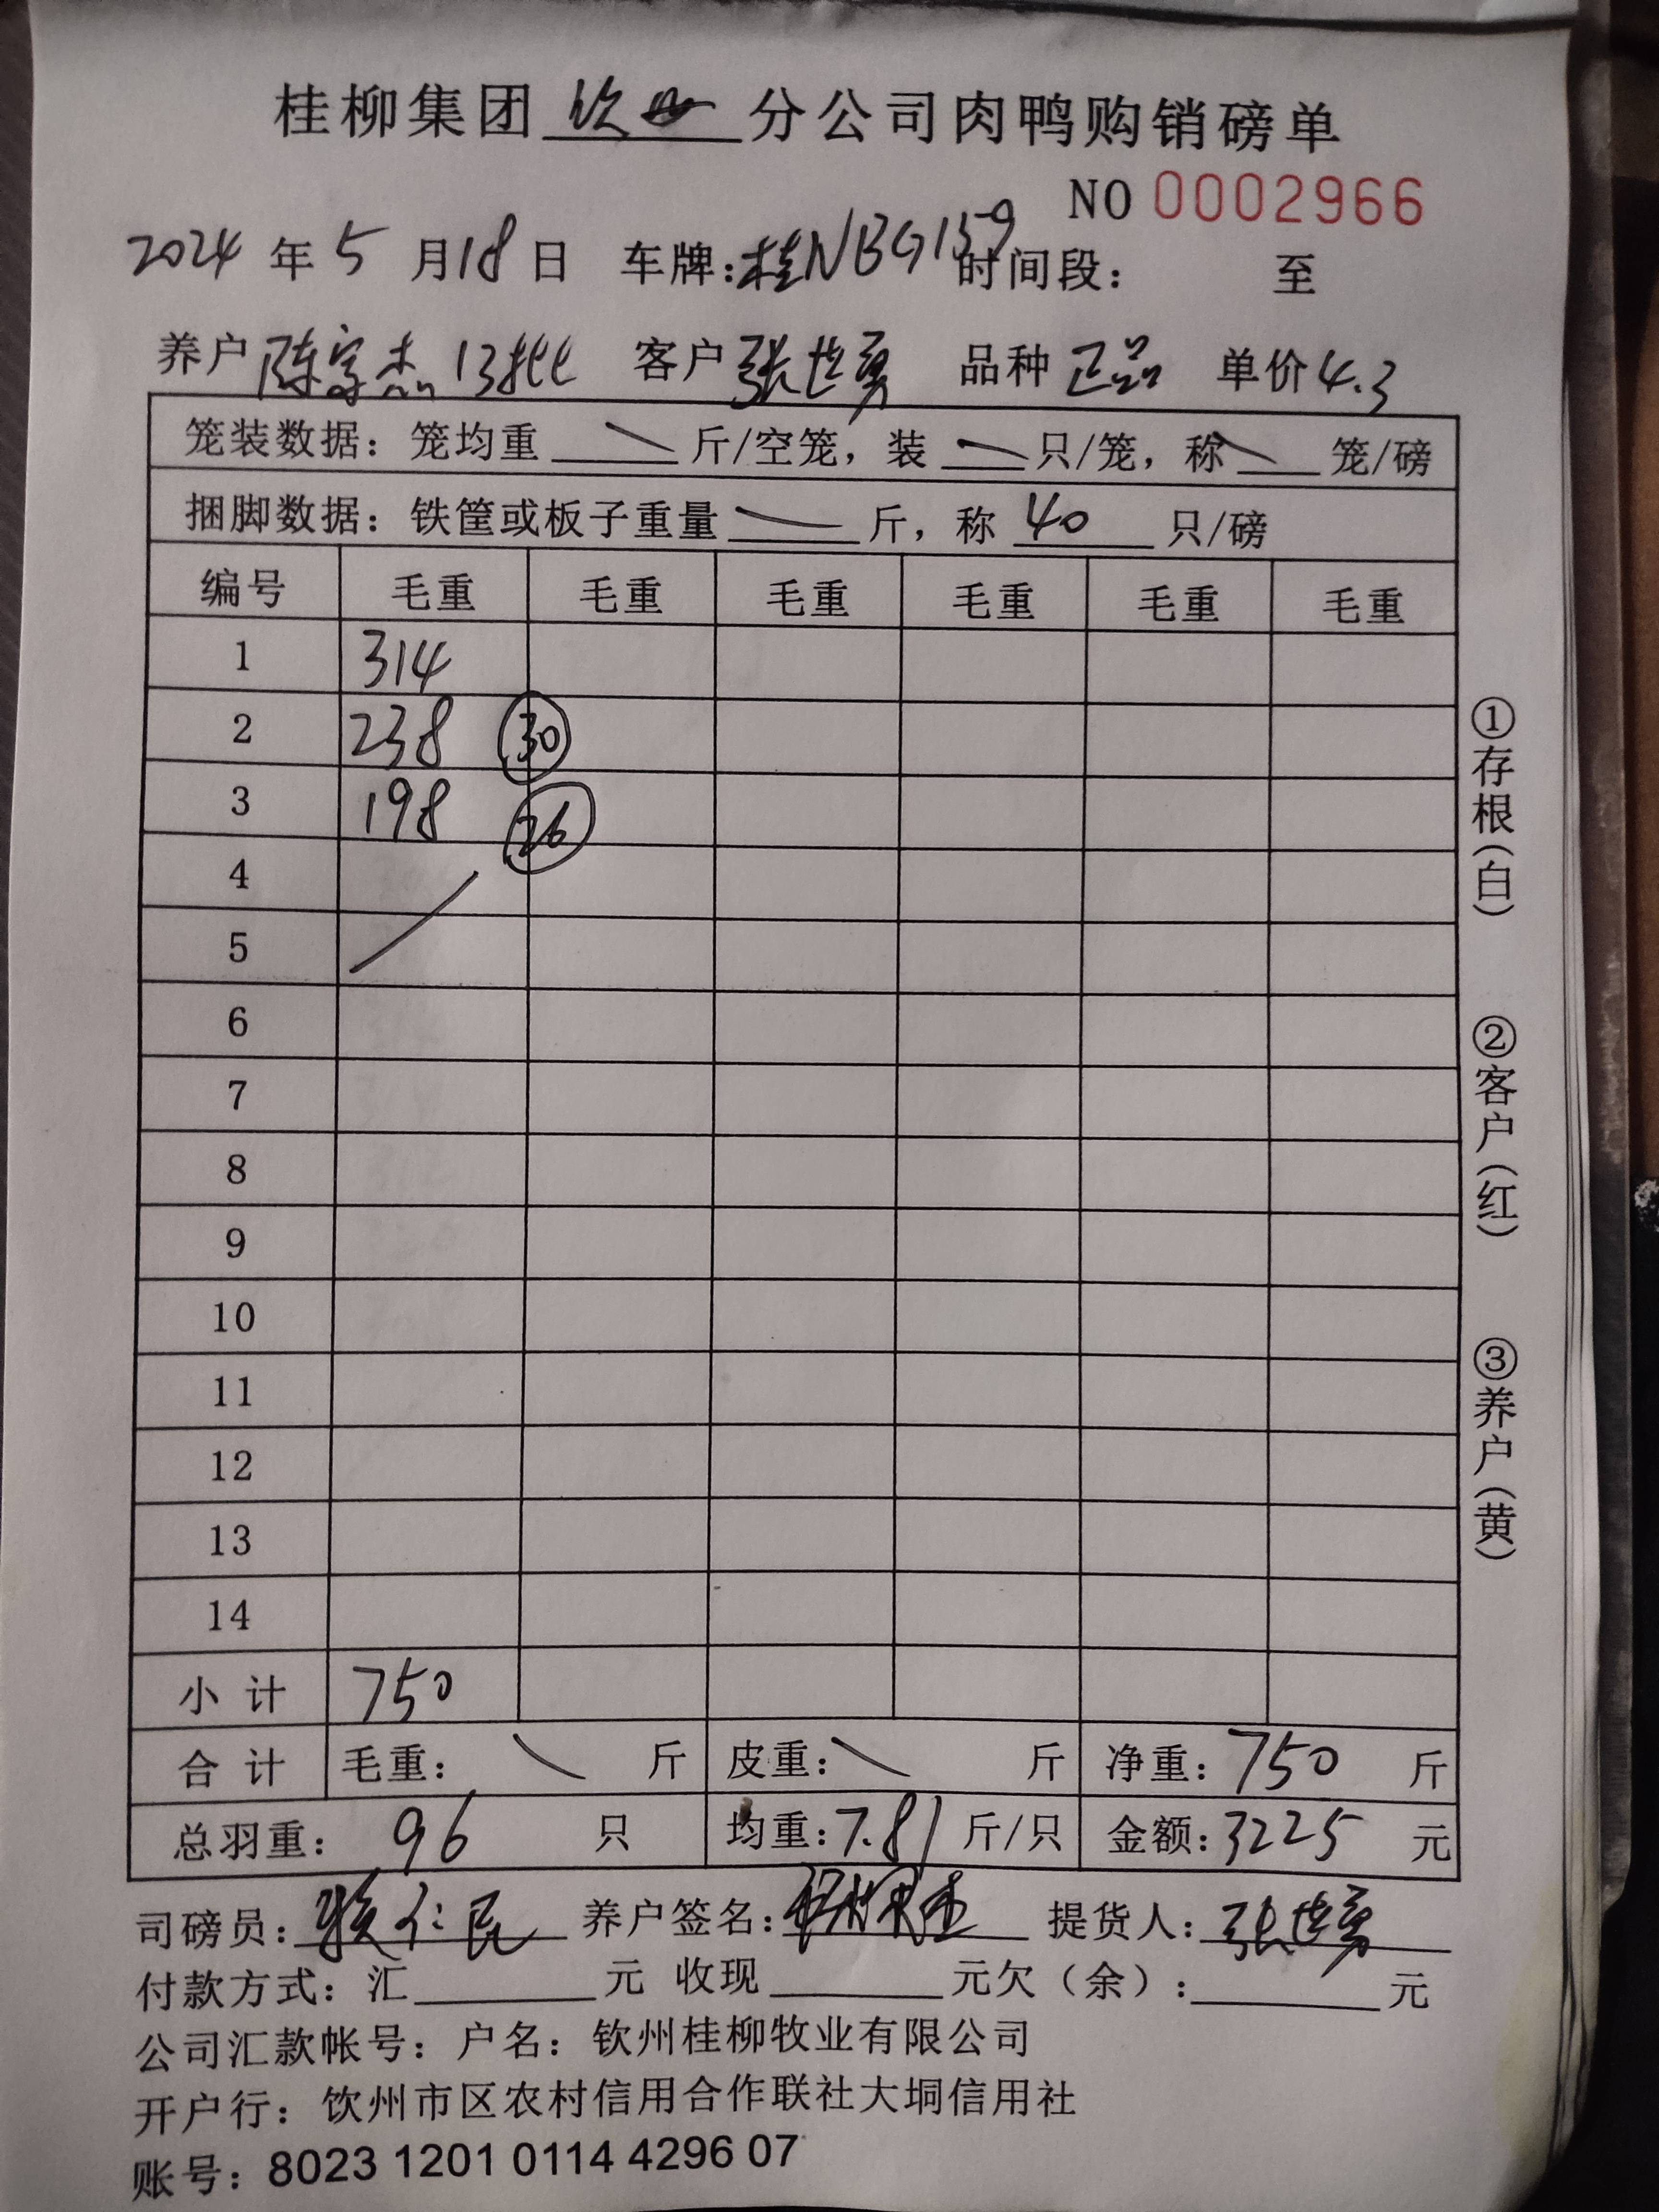 桂柳集团钦州分公司肉鸭购销磅单
NO 0002966
2024 年 5 月 18 日 车牌:桂NBG159 时间段: 至
养户 陈家杰 13批 客户 张世勇 品种 正品 单价 4.3
笼装数据: 笼均重 斤/空笼, 装 只/笼, 称 笼/磅
捆脚数据: 铁筐或板子重量 斤, 称 40 只/磅
编号 毛重 毛重 毛重 毛重 毛重 毛重
1 314
2 238 30
3 198 26
4
5
6
7
8
9
10
11
12
13
14
小计 750
合计 毛重: 斤 皮重: 斤 净重: 750 斤
总羽重: 96 只 均重: 7.81 斤/只 金额: 3225 元
司磅员: 仁民 养户签名: 提货人: 张世勇
付款方式: 汇 元 收现 元欠(余): 元
公司汇款帐号: 户名: 钦州桂柳牧业有限公司
开户行: 饮州市区农村信用合作联社大垌信用社
账号: 8023 1201 0114 4296 07
①存根(白)
②客户(红)
③养户(黄)